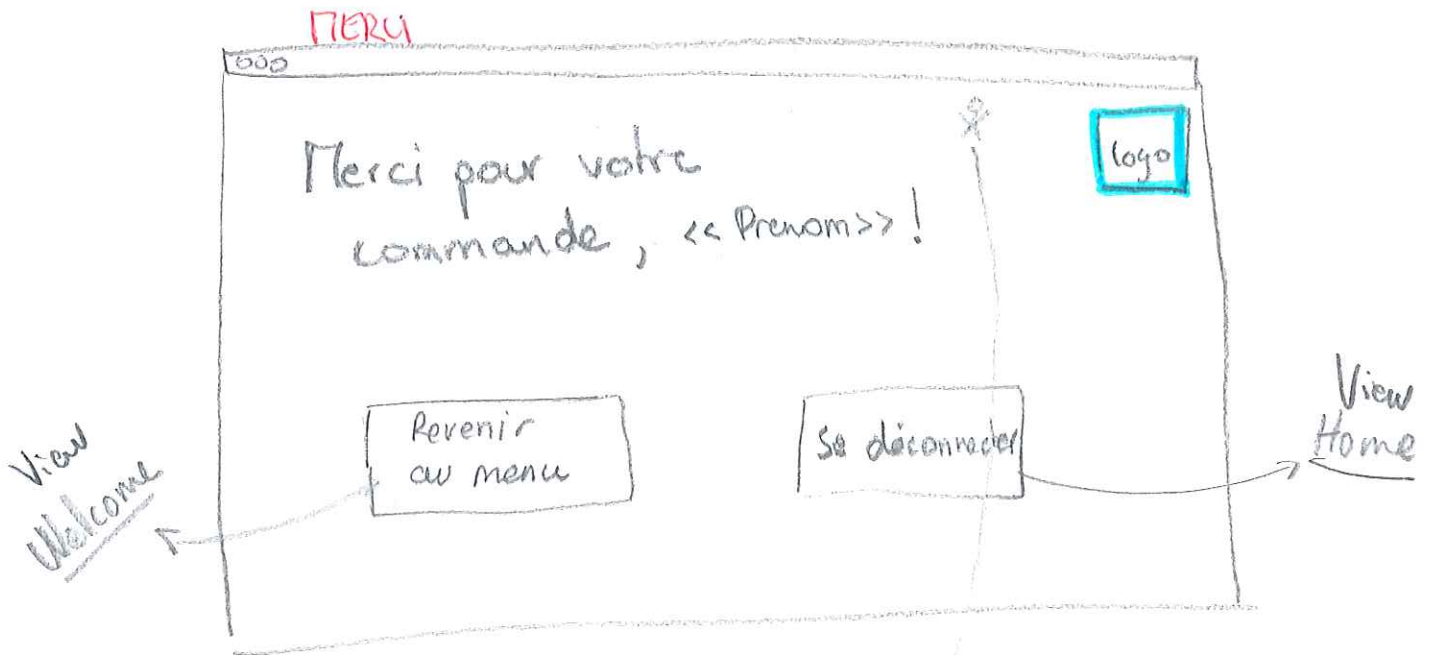 MERCI
Merci pour votre
commande, << Prenom>> !
logo
Revenir
au menu
Se déconnecter
View
Welcome
View
Home